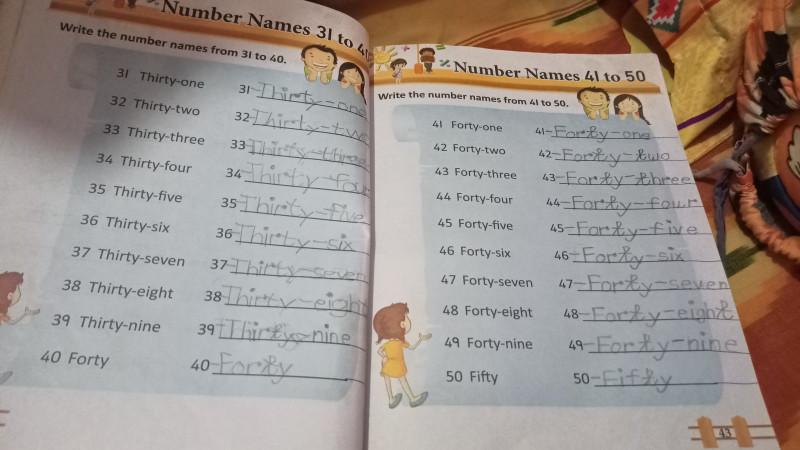 Number Names 31 to 40
Write the number names from 31 to 40.
31 Thirty-one 31-Thirty-one
32 Thirty-two 32-Thirty-two
33 Thirty-three 33-Thirty-three
34 Thirty-four 34-Thirty-four
35 Thirty-five 35-Thirty-five
36 Thirty-six 36-Thirty-six
37 Thirty-seven 37-Thirty-seven
38 Thirty-eight 38-Thirty-eigh
39 Thirty-nine 39-Thirty-nine
40 Forty 40-Forty
Number Names 41 to 50
Write the number names from 41 to 50.
41 Forty-one 41-Forty-one
42 Forty-two 42-Forty-two
43 Forty-three 43-Forty-three
44 Forty-four 44-Forty-four
45 Forty-five 45-Forty-five
46 Forty-six 46-Forty-six
47 Forty-seven 47-Forty-seven
48 Forty-eight 48-Forty-eight
49 Forty-nine 49-Forty-nine
50 Fifty 50-Fifty
43